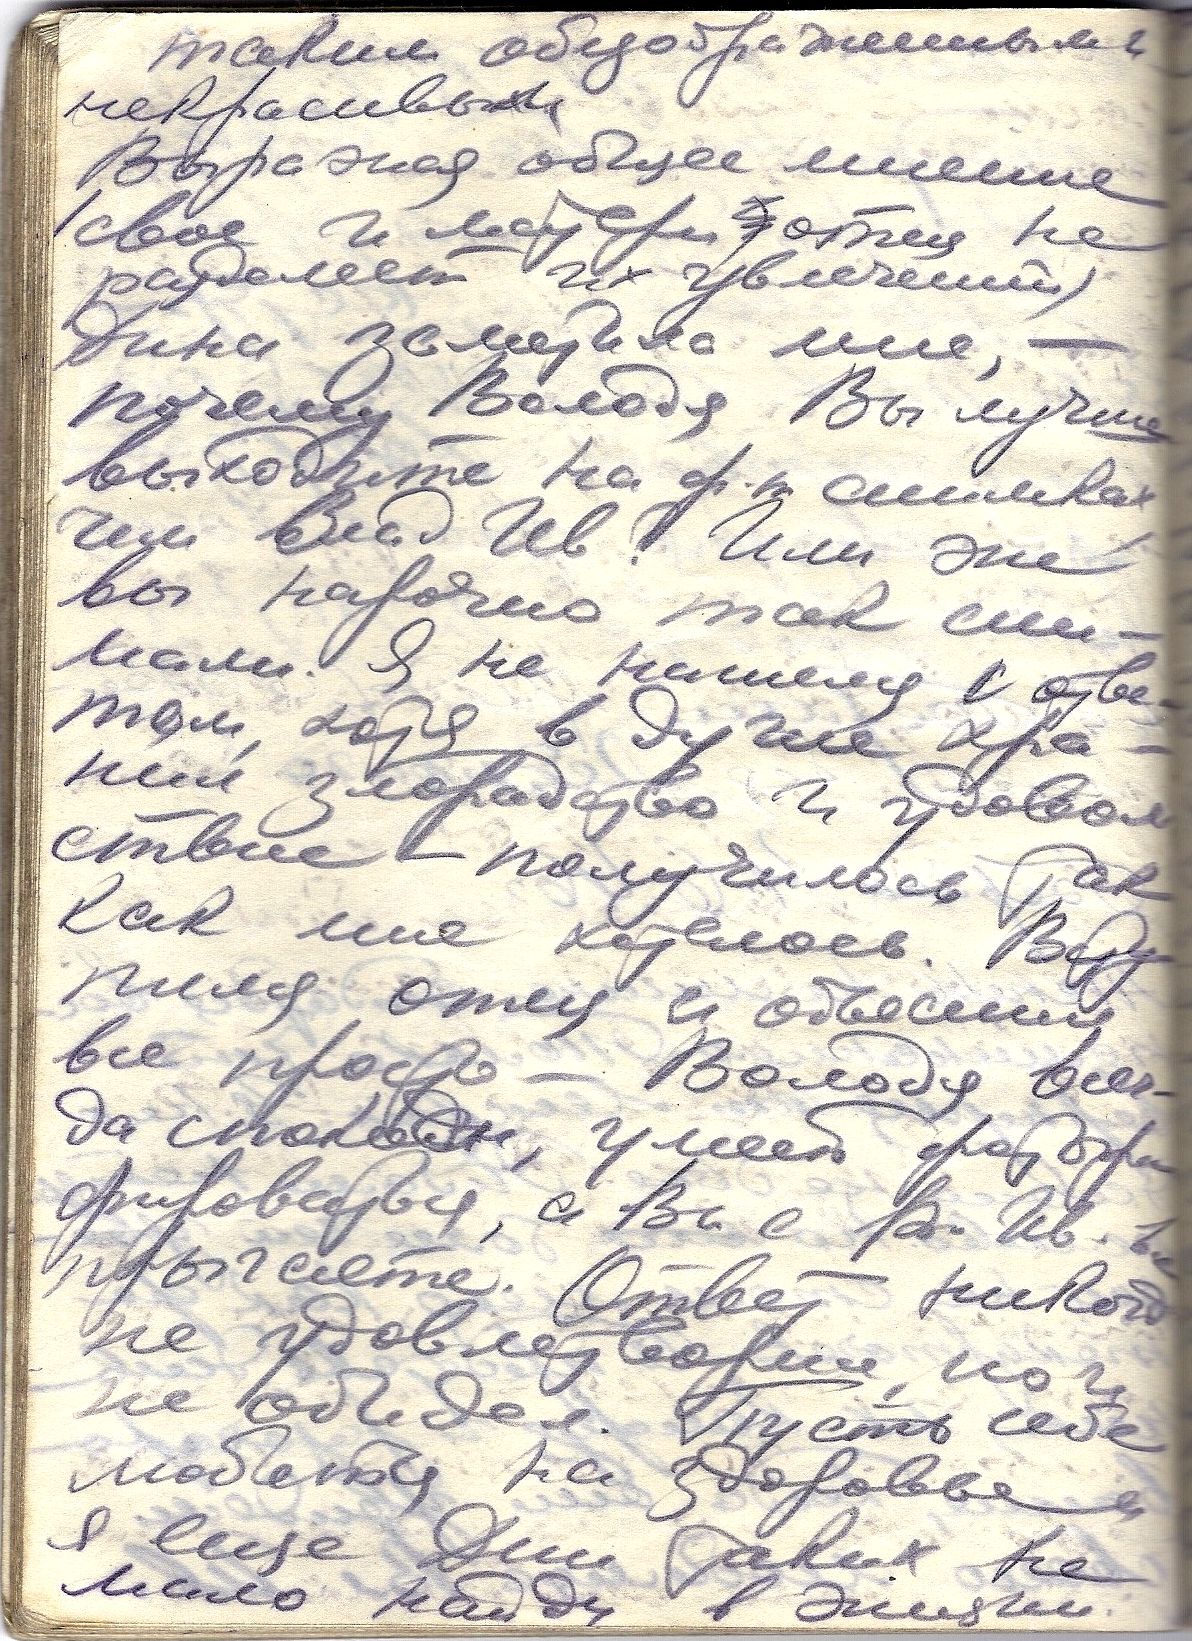 таким обезображенным и
некрасивым
Выражая общее мнение
(свое и матери, отец не
разделяет их увлечений)
Дина заметила мне, —
почему Володя Вы лучше
выходите на ф. снимках
чем Влад Ив? Или же
вы нарочно так сни-
мали. Я не нашелся с отве-
том, хотя в душе хра-
нил злорадство и удоволь
ствие – получилось так
как мне хотелось. Всту-
пился отец и объяснил
все просто – Володя всег-
да спокоен, умеет фотогра
фироваться, а Вы с Вл. Ив. все
прыгаете. Ответ никого
не удовлетворил, но и
не обидел. Пусть себе
любится на здоровье а
я еще Дин таких не
мало найду в жизни.